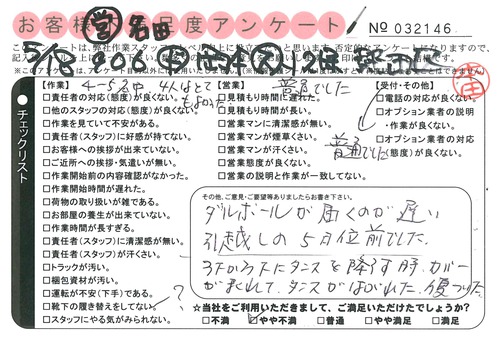 お客様満足度アンケート
No 032146
【作業】
□責任者の対応(態度)が良くない。
□他のスタッフの対応(態度)が良くない。
□作業を見ていて不安がある。
□責任者(スタッフ)に好感が持てない。
□お客様への挨拶が出来ていない。
□ご近所への挨拶・気遣いが無い。
□作業開始前の内容確認がなかった。
□作業開始時間が遅れた。
□荷物の取り扱いが雑である。
□お部屋の養生が出来ていない。
□作業時間が長すぎる。
□責任者(スタッフ)に清潔感が無い。
□責任者(スタッフ)が汗くさい。
□トラックが汚い。
□梱包資材が汚い。
□運転が不安(下手)である。
□靴下の履き替えをしてない。
?
□スタッフにやる気がみられない。
チェックリスト
【営業】
普通でした
□見積もり時間に遅れた。
□見積もり時間が長い。
□営業マンに清潔感が無い。
□営業マンが煙草くさい。
□営業マンが汗くさい。
□営業態度が良くない。
□営業の説明と作業が一致してない。
【受付・その他】
□電話の対応が良くない。
□オプション業者の説明
・作業が良くない。
□オプション業者の対応
(態度)が良くない。
普通でした
その他、ご意見・ご要望等ありましたらお書き下さい。
ダルボールが届くのが遅い
引越しの5日位前でした。
タンスを降ろす時、カバー
タンスがはがれた、傷ついた
☆当社をご利用いただきまして、ご満足いただけたでしょうか?
□不満 □やや不満 □普通 □やや満足 □満足